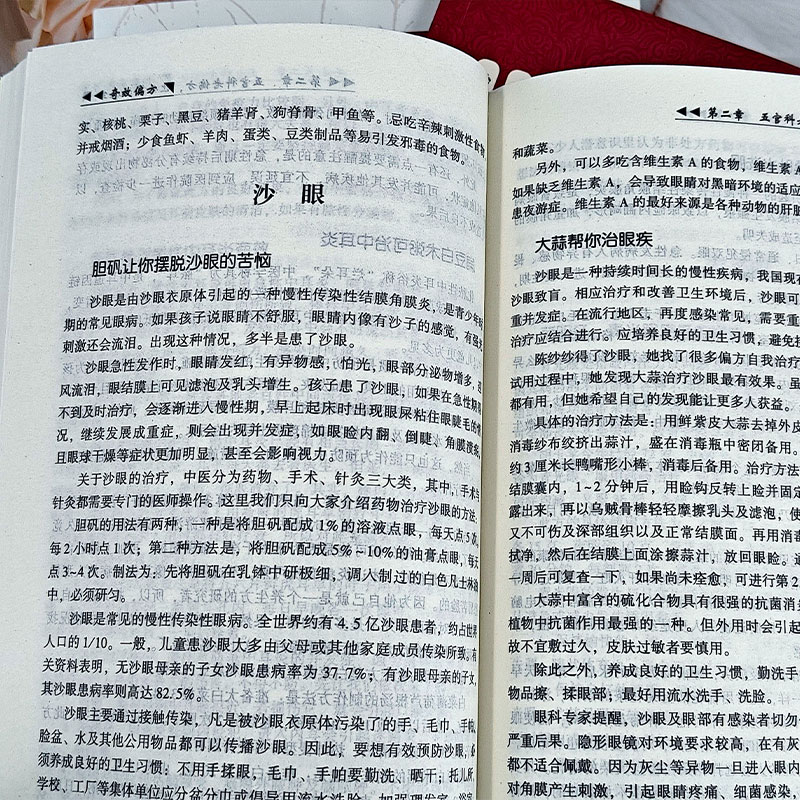 奇效偏方
实、核桃、栗子、黑豆、猪羊肾、狗脊骨、甲鱼等。忌吃辛辣刺激性食物
并戒烟酒；少食鱼虾、羊肉、蛋类、豆类制品等易引发邪毒的食物。
沙 眼
胆矾让你摆脱沙眼的苦恼
沙眼是由沙眼衣原体引起的一种慢性传染性结膜角膜炎，是青少年时
期的常见眼病。如果孩子说眼睛不舒服，眼睛内像有沙子的感觉，有强光
刺激还会流泪。出现这种情况，多半是患了沙眼。
沙眼急性发作时，眼睛发红，有异物感，怕光，眼部分泌物增多，迎
风流泪，眼结膜上可见滤泡及乳头增生。孩子患了沙眼，如果在急性期得
不到及时治疗，会逐渐进入慢性期，早上起床时出现眼屎粘住眼睫毛的情
况，继续发展成重症，则会出现并发症，如眼睑内翻、倒睫、角膜溃疡，
且眼球干燥等症状更加明显，甚至会影响视力。
关于沙眼的治疗，中医分为药物、手术、针灸三大类，其中，手术与
针灸都需要专门的医师操作。这里我们只向大家介绍药物治疗沙眼的方法。
胆矾的用法有两种，一种是将胆矾配成1%的溶液点眼，每天点5次，
每2小时点1次；第二种方法是，将胆矾配成5%~10%的油膏点眼，每天
点3~4次。制法为：先将胆矾在乳钵中研极细，调入制过的白色凡士林油
中，必须研匀。
沙眼是常见的慢性传染性眼病。全世界约有4.5亿沙眼患者，约占世界
人口的1/10。一般，儿童患沙眼大多由父母或其他家庭成员传染所致。有
关资料表明，无沙眼母亲的子女沙眼患病率为37.7%；有沙眼母亲的子女，
其沙眼患病率则高达82.5%。
沙眼主要通过接触传染，凡是被沙眼衣原体污染了的手、毛巾、手帕、
脸盆、水及其他公用物品都可以传播沙眼。因此，要想有效预防沙眼，必
须养成良好的卫生习惯：不用手揉眼，毛巾、手帕要勤洗、晒干；托儿所、
学校、工厂等集体单位应分盆分巾或倡导用流水洗脸，加强理发室、浴室
第二章 五官科
和蔬菜。
另外，可以多吃含维生素A的食物，维生素A
如果缺乏维生素A，会导致眼睛对黑暗环境的适应
患夜游症。维生素A的最好来源是各种动物的肝脏
大蒜帮你治眼疾
沙眼是一种持续时间长的慢性疾病，我国现有
沙眼致盲。相应治疗和改善卫生环境后，沙眼可
重并发症。在流行地区，再度感染常见，需要重
治疗应结合进行。应培养良好的卫生习惯，避免接
陈纱纱得了沙眼，她找了很多偏方自我治疗
试用过程中，她发现大蒜治疗沙眼最有效果。虽
都有用，但她希望自己的发现能让更多人获益。
具体的治疗方法是：用鲜紫皮大蒜去掉外皮
消毒纱布绞挤出蒜汁，盛在消毒瓶中密闭备用。
约3厘米长鸭嘴形小棒，消毒后备用。治疗方法
结膜囊内，1~2分钟后，用睑钩反转上睑并固定
露出来，再以乌贼骨棒轻轻摩擦乳头及滤泡，使
又不可伤及深部组织以及正常结膜面。再用消毒
拭净，然后在结膜上面涂擦蒜汁，放回眼睑。通
一周后可复查一下，如果尚未痊愈，可进行第2
大蒜中富含的硫化合物具有很强的抗菌消炎
植物中抗菌作用最强的一种。但外用时会引起
故不宜敷过久，皮肤过敏者要慎用。
除此之外，养成良好的卫生习惯，勤洗手
物品擦、揉眼部；最好用流水洗手、洗脸。
眼科专家提醒，沙眼及眼部有感染者切勿
严重后果。隐形眼镜对环境要求较高，在有灰
都不适合佩戴。因为灰尘等异物一旦进入眼内
对角膜产生刺激，引起眼睛疼痛、细菌感染，